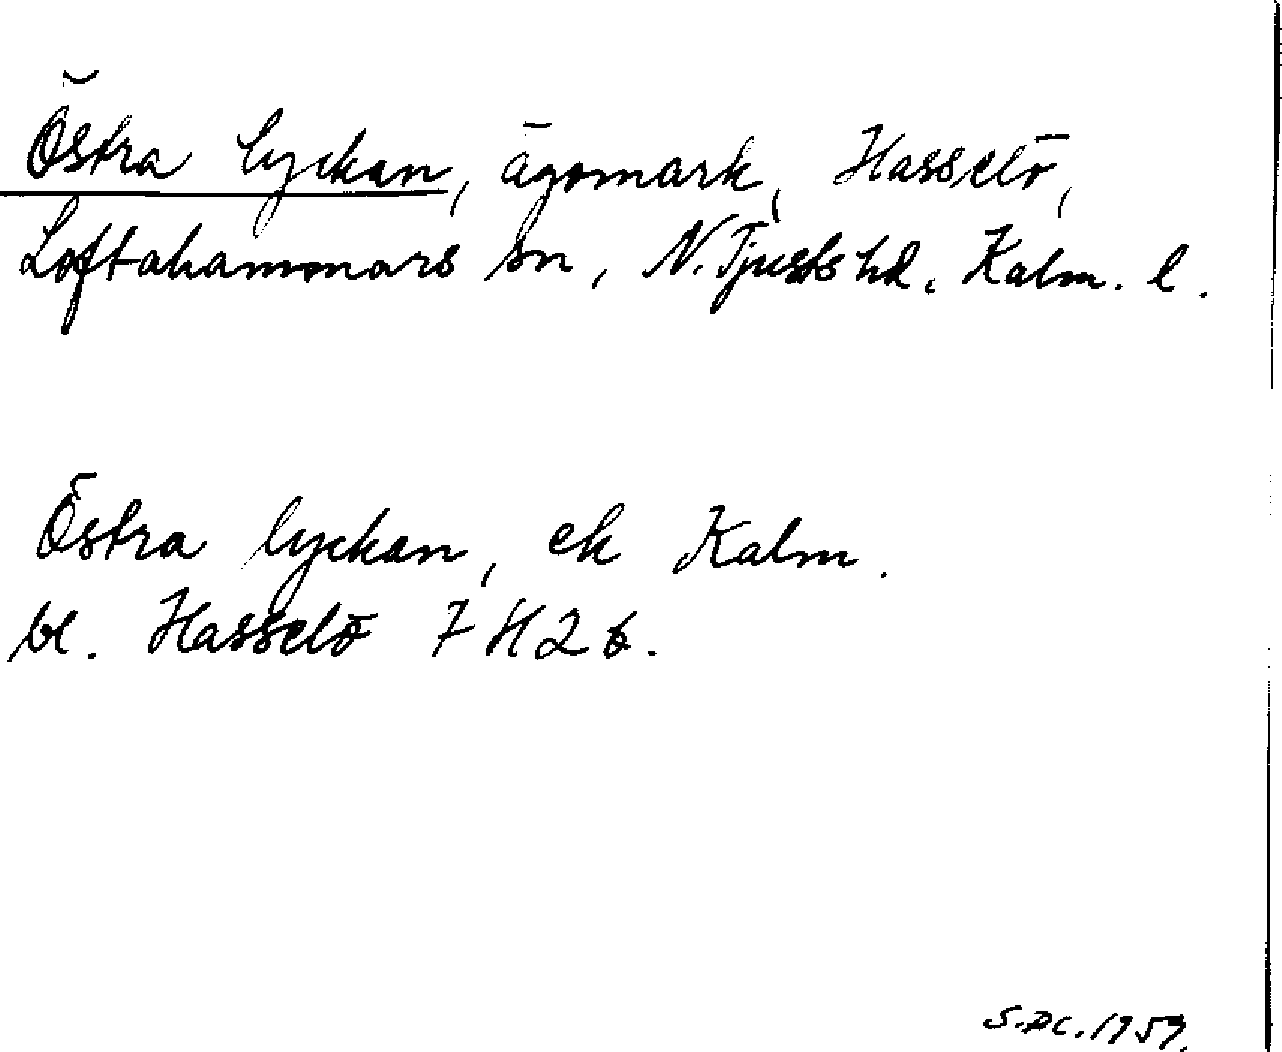 Östra lyckan, ägomark, Hasselö,
Loftahammars sn, N. Tjusts hd. Kalm. l.
Östra lyckan, ek Kalm.
bl. Hasselö 7 H 2 b.
1959.